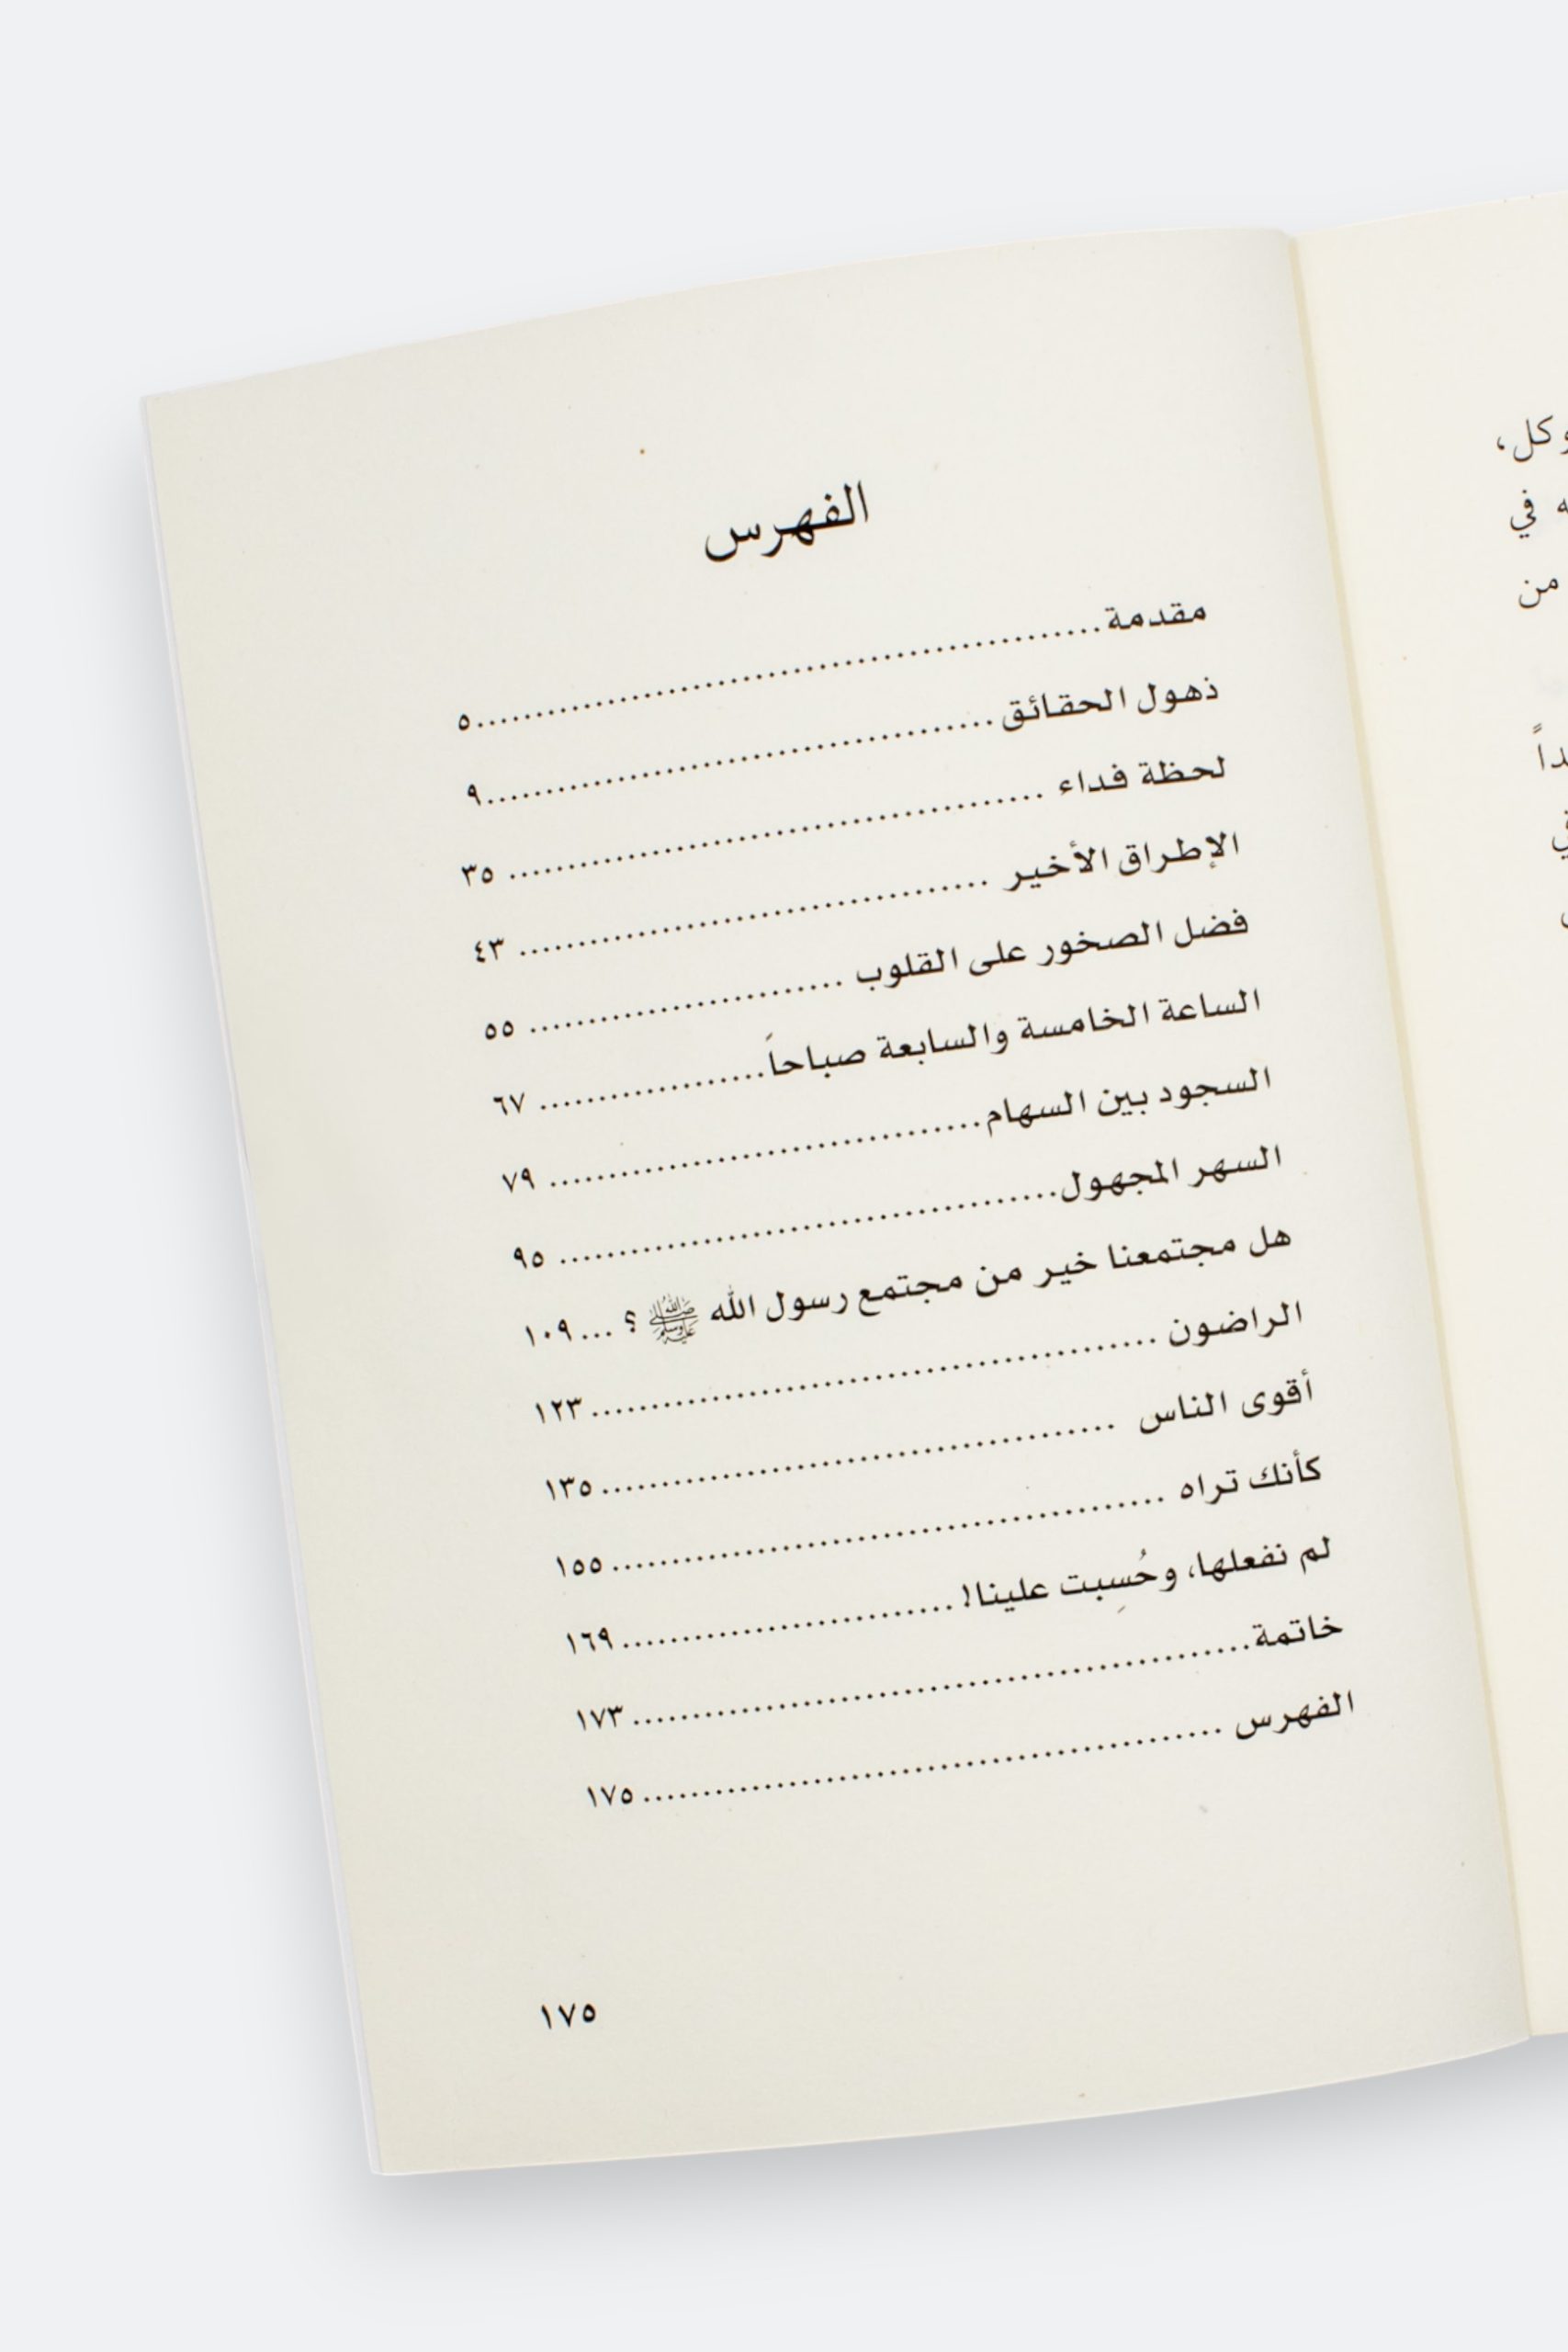 وكل،
في
من
الفهرس
مقدمة.................................................................٥
ذهول الحقائق....................................................٩
لحظة فداء ...................................................... ٣٥
الإطراق الأخير ............................................... ٤٣
فضل الصخور على القلوب ................................ ٥٥
الساعة الخامسة والسابعة صباحاً....................... ٦٧
السجود بين السهام............................................ ٧٩
السهر المجهول.................................................. ٩٥
هل مجتمعنا خير من مجتمع رسول الله ﷺ ؟ ...١٠٩
الراضون .........................................................١٢٣
أقوى الناس ....................................................١٣٥
كأنك تراه ........................................................١٥٥
لم نفعلها، وحُسِبت علينا!.................................١٦٩
خاتمة..............................................................١٧٣
الفهرس ..........................................................١٧٥
١٧٥